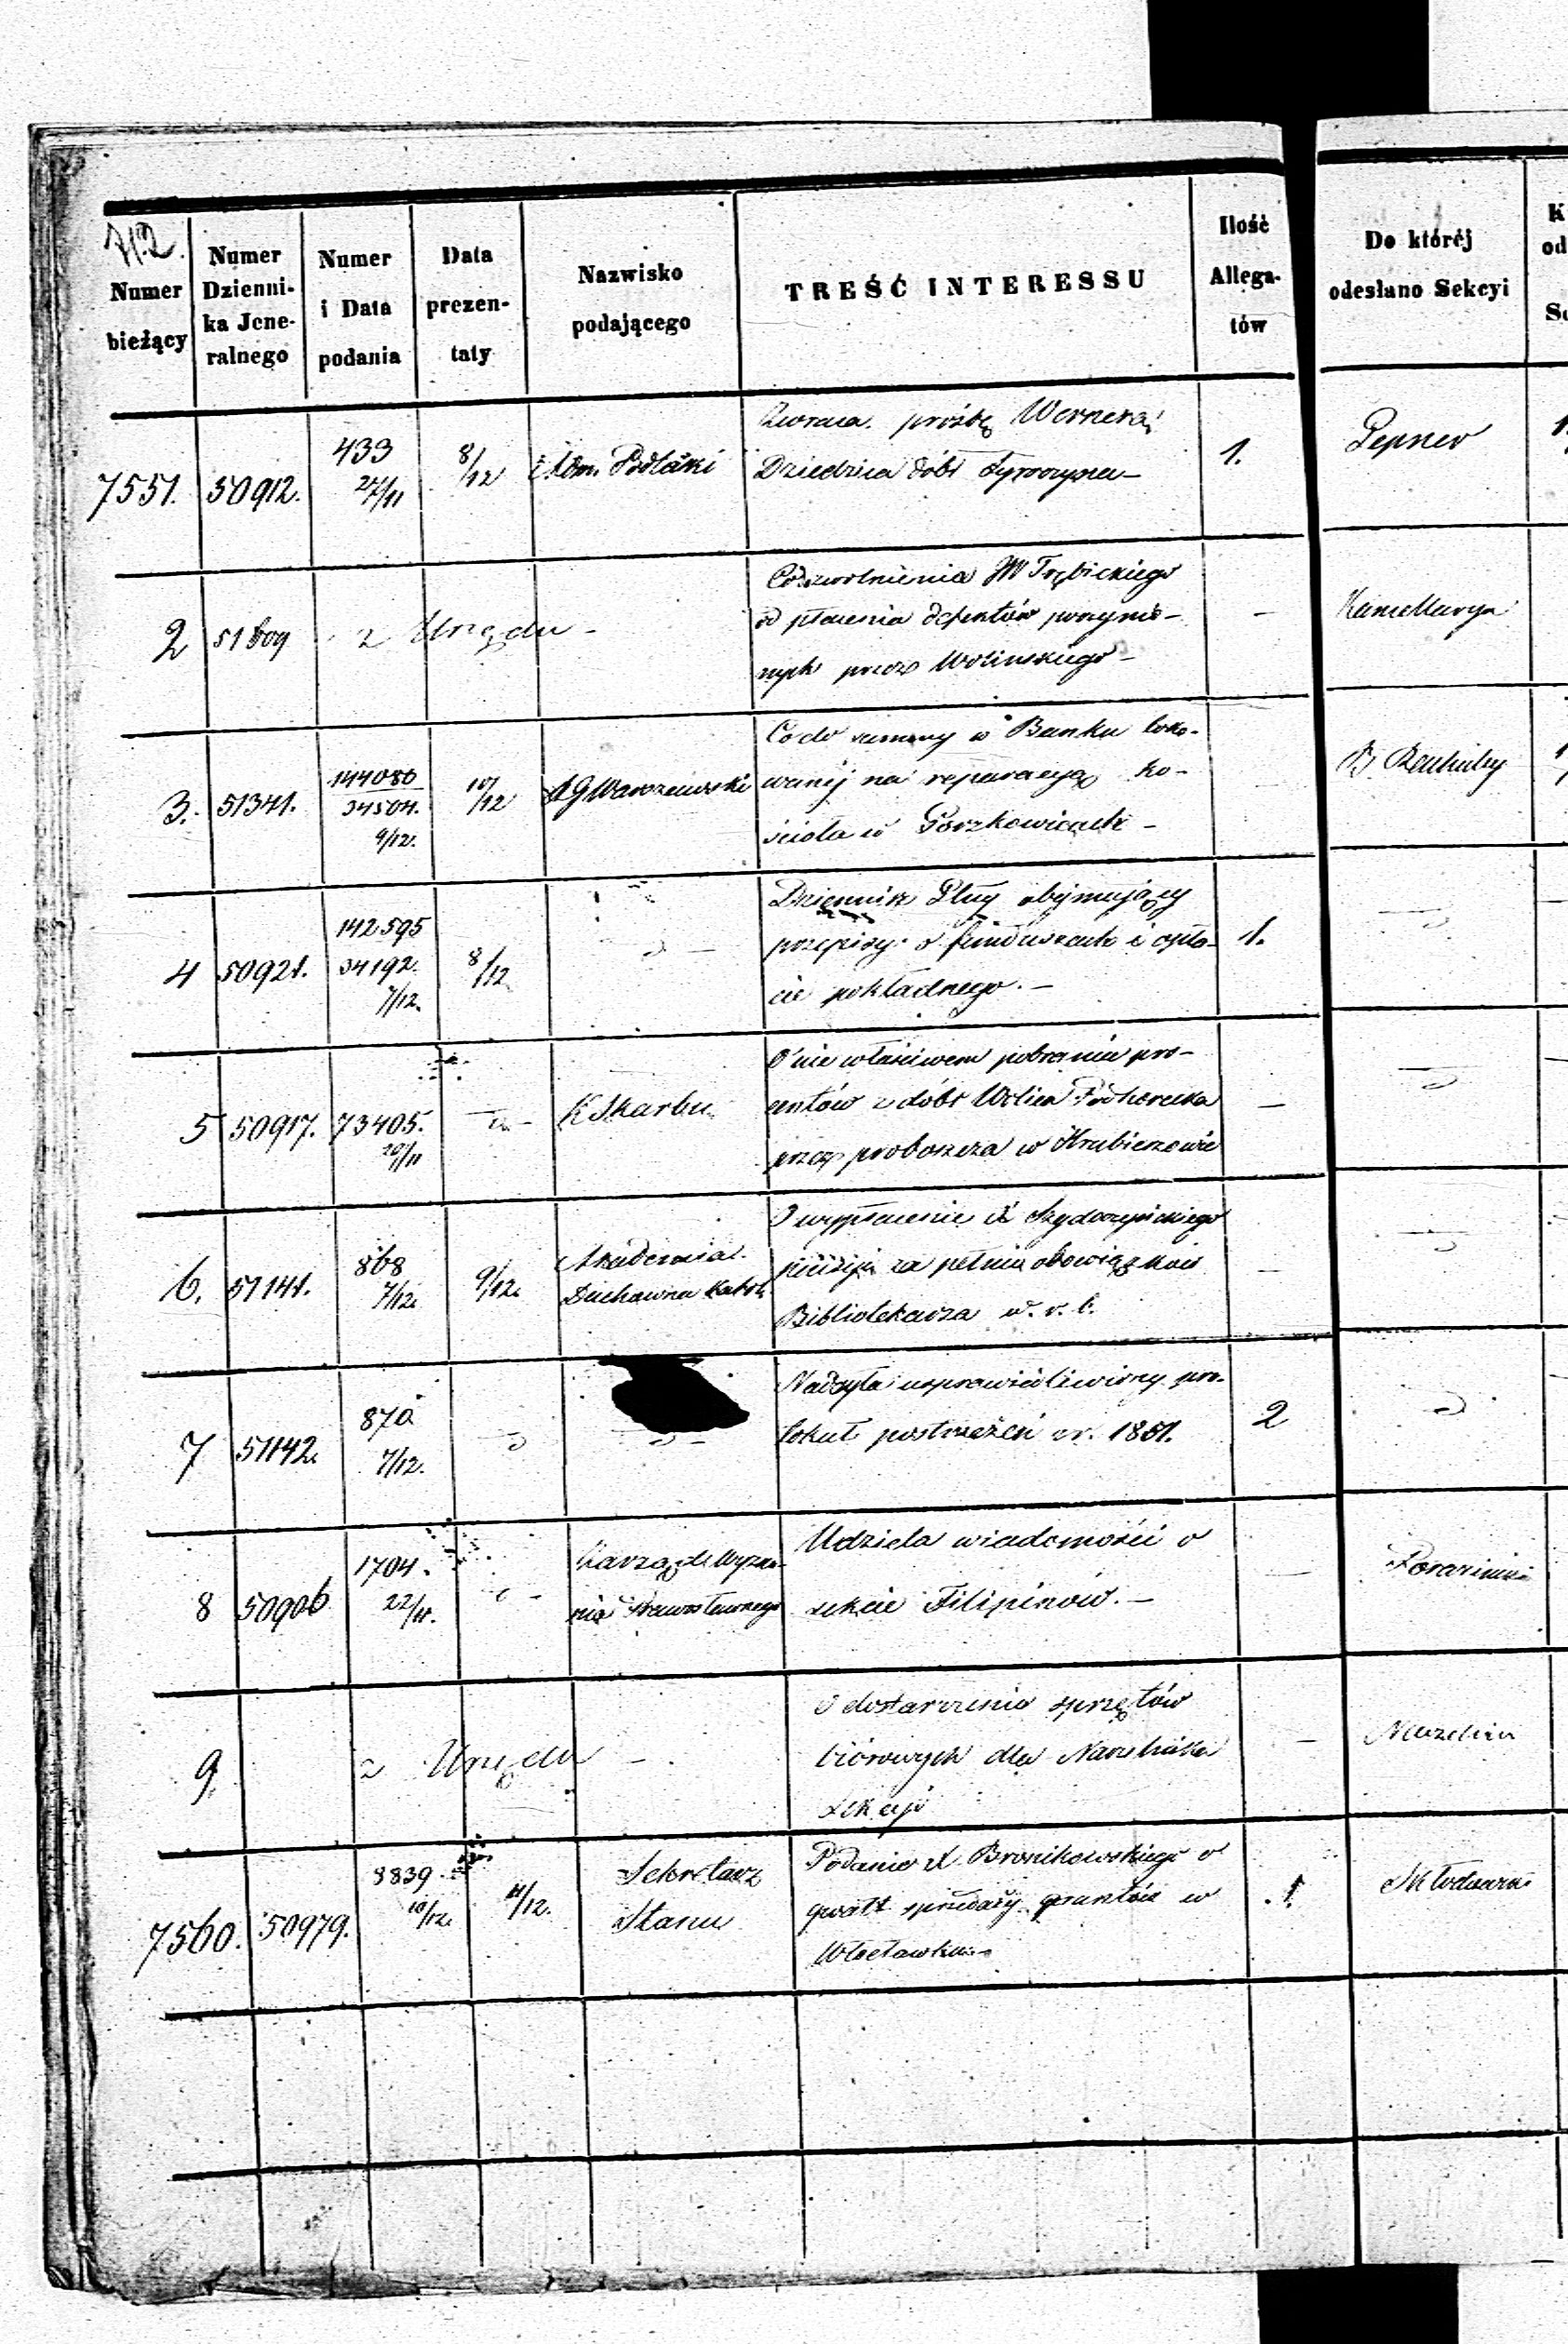 Numer bieżący
Numer Dzienni- ka Jene- ralnego
Numer i Data podania
Data prezen- taty
Nazwisko podającego
TREŚĆ INTERESSU
Ilość Allega- tów
Do któréj odesłano Sekcyi
7551. 50912. 433 27/11 8/12 Adm. Podlaski
Zwraca prośbę Wernera
Dziedzica dóbr
1.
Pepner
2 51809 z Urzędu -
Co uwolnienia JW Trębickiego
od płacenia
przez Wolinskiego -
-
Kancellarya
3. 51341. 144080 34504. 9/12. 10/12 AG Warszawski
Co do summy w Banku loko-
wanéj na reparacyą ko-
ścioła w Gorzkowicach -
4 50921. 142595 34192. 7/12. 8/12
Dziennik obejmujący
przepisy o funduszach i opła-
cie pokładnego. -
1.
5 50917. 73405. 29/11 K Skarbu
O nie właściwem pobraniu pro-
centów z dóbr Wolica
przez proboszcza w Hrubieszowie
-
6. 51141. 868 7/12. 9/12. Akademia
Duchowna Katol.
O wypłacenie X
pensji za pełnie obowiązków
Bibliotekarza w. r. b.
-
7 51142. 870 7/12.
Nadsyła usprawiedliwiony pro-
tokuł postrzeżeń z r. 1861.
2
8 50906 1704. 22/11. Zarząd Wyzna-
nia Prawosławnego
Udziela wiadomości o
sekcie Filipinów. -
9. z Urzędu -
O dostarczenie sprzętów
biórowych dla Naczelnika
Sekcyi
-
7560. 50979. 8839. 10/12. 11/12. Sekretarz
Stanu
Podanie X. Bronikowskiego o
gwałt. sprzedaży gruntów w
Włocławku -
1.